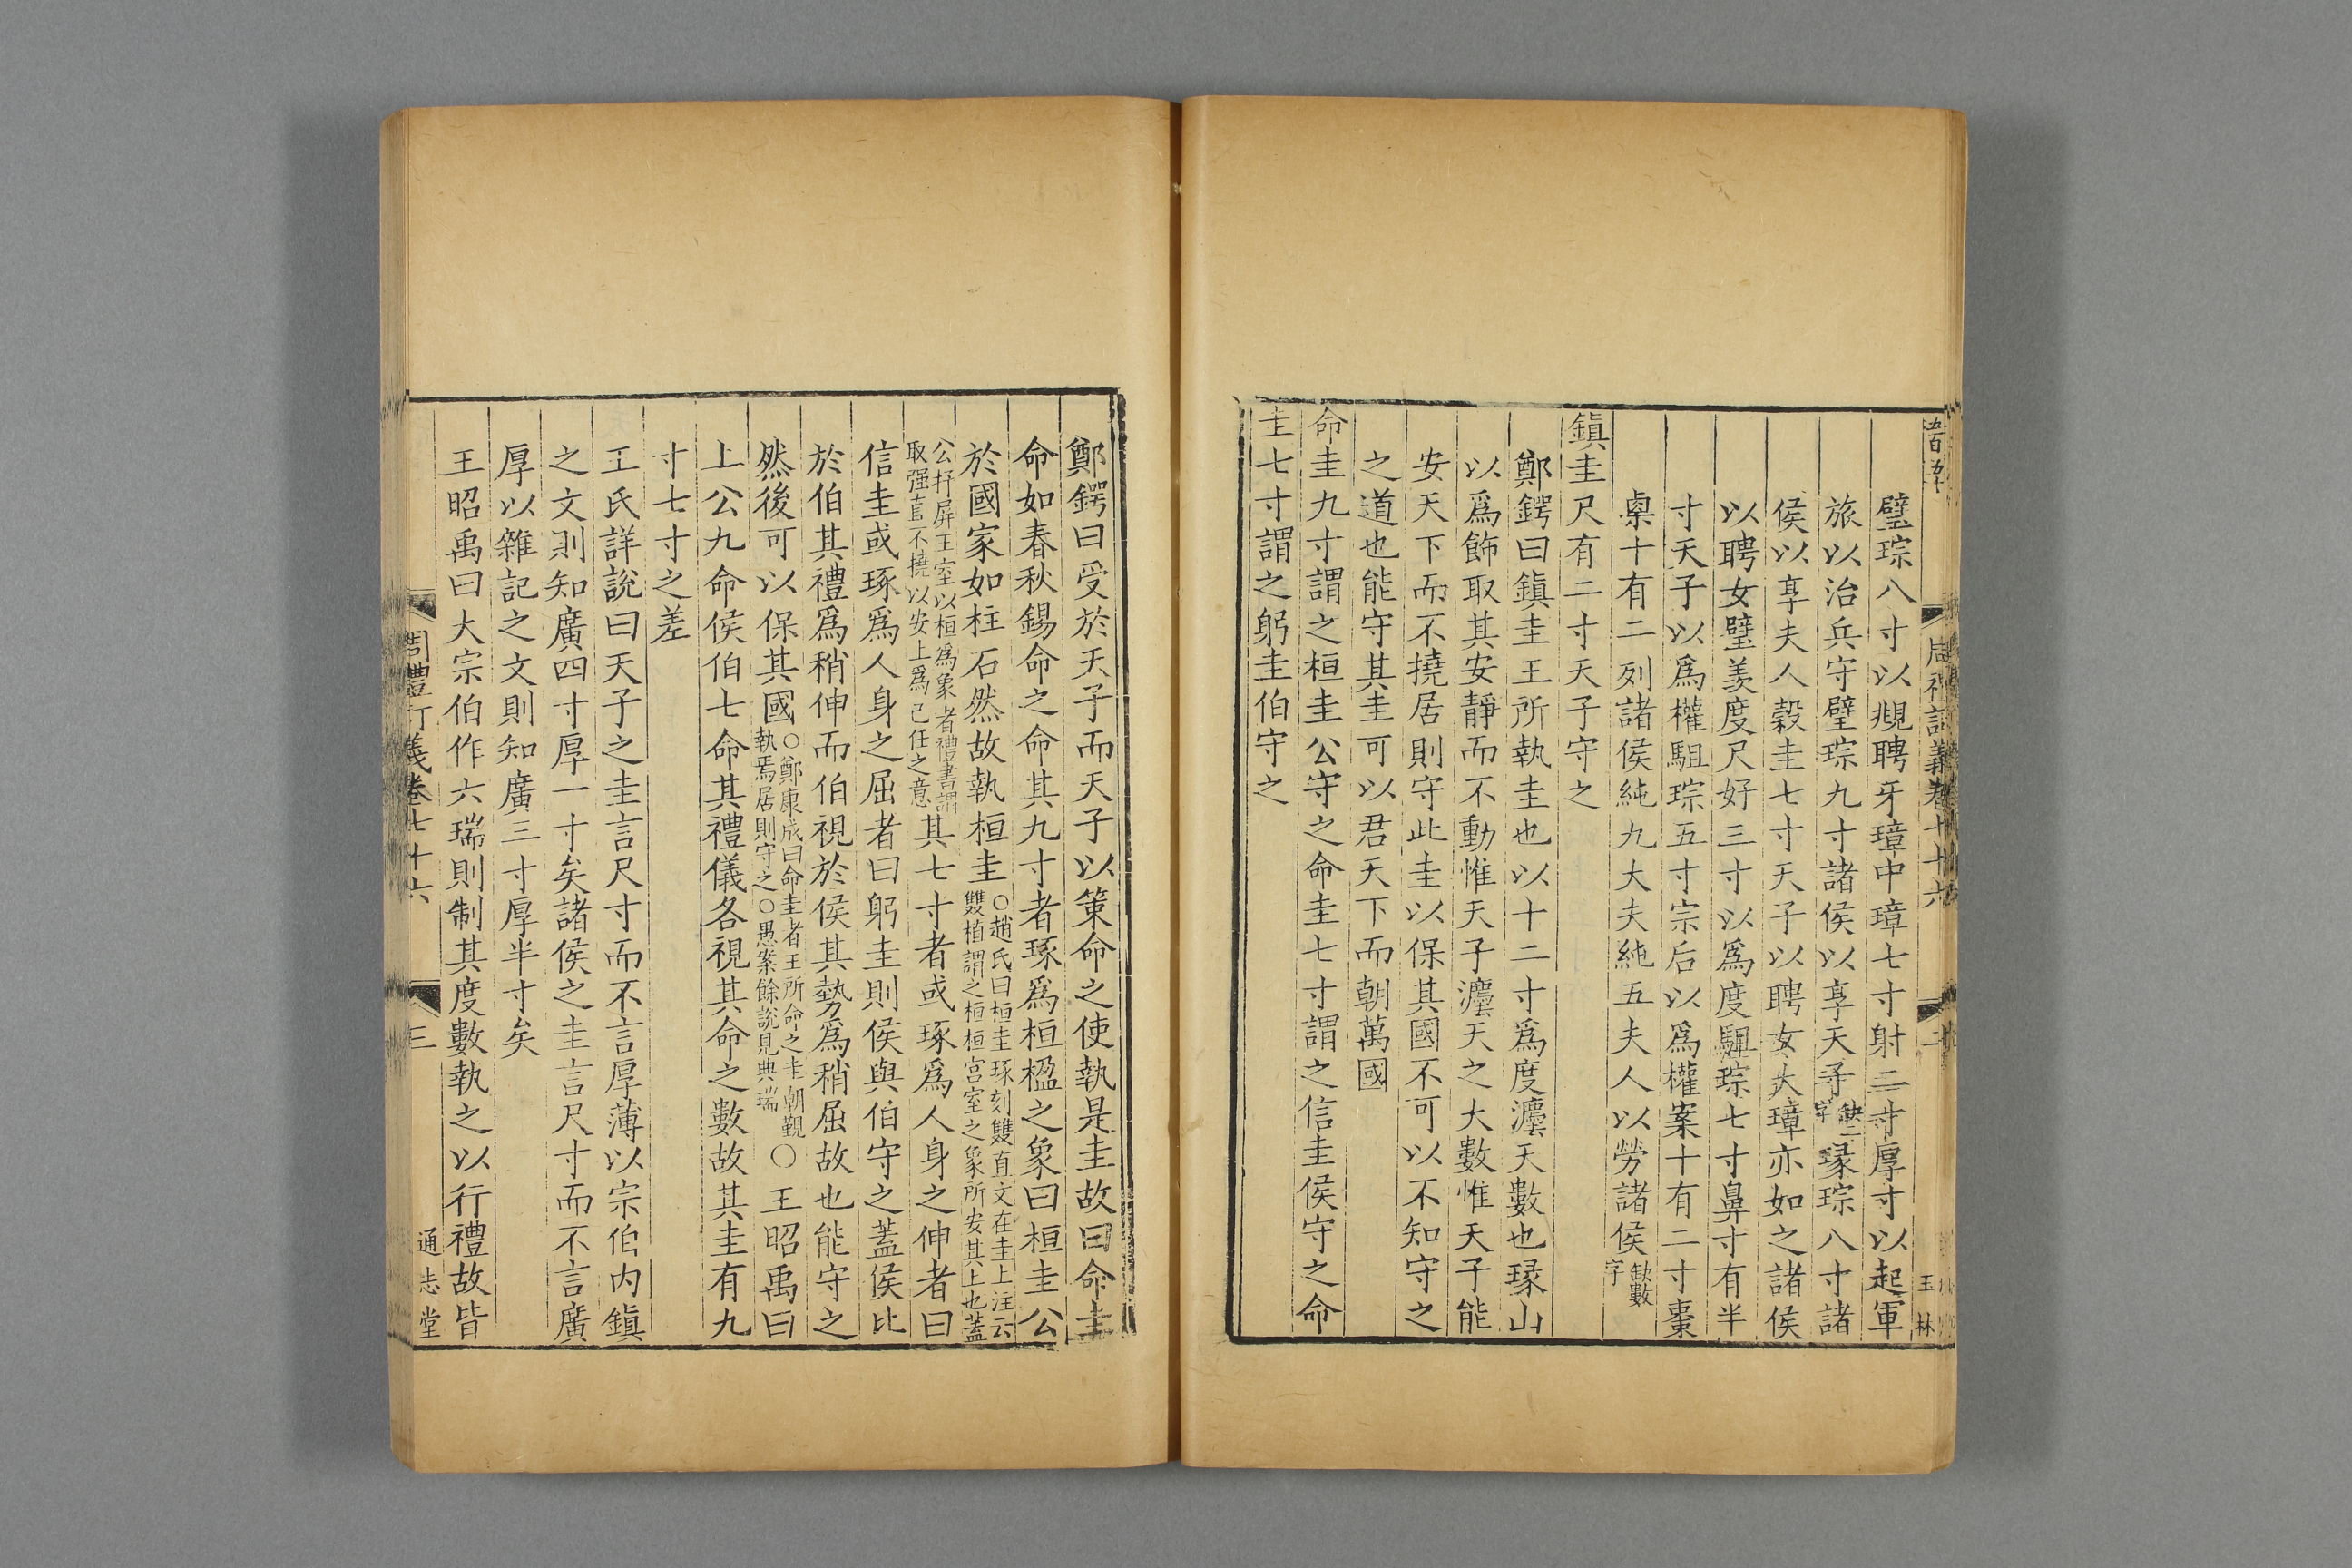 璧琮八寸以覜聘牙璋中璋七寸射二寸厚寸以起軍
旅以治兵守璧琮九寸諸侯以享天子缺二字瑑琮八寸諸
侯以享夫人穀圭七寸天子以聘女大璋亦如之諸侯
以聘女璧羡度尺好三寸以爲度駔琮七寸鼻寸有半
寸天子以爲權駔琮五寸宗后以爲權案十有二寸棗
㮚十有二列諸侯純九大夫純五夫人以勞諸侯缺數字
鎮圭尺有二寸天子守之
鄭鍔曰鎮圭王所執圭也以十二寸爲度灋天數也瑑山
以爲飾取其安靜而不動惟天子灋天之大數惟天子能
安天下而不撓居則守此圭以保其國不可以不知守之
之道也能守其圭可以君天下而朝萬國
命圭九寸謂之桓圭公守之命圭七寸謂之信圭侯守之命
圭七寸謂之躬圭伯守之
鄭鍔曰受於天子而天子以策命之使執是圭故曰命圭
命如春秋錫命之命其九寸者琢爲桓楹之象曰桓圭公
於國家如柱石然故執桓圭○趙氏曰桓圭琢刻雙直文在圭上注云雙植謂之桓桓宮室之象所安其上也蓋
公扞屏王室以桓爲象者禮書謂取强直不撓以安上爲己任之意其七寸者或琢爲人身之伸者曰
信圭或琢爲人身之屈者曰躬圭則侯與伯守之蓋侯比
於伯其禮爲稍伸而伯視於侯其勢爲稍屈故也能守之
然後可以保其國○鄭康成曰命圭者王所命之圭朝覲執焉居則守之○愚案餘說見典瑞○王昭禹曰
上公九命侯伯七命其禮儀各視其命之數故其圭有九
寸七寸之差
王氏詳說曰天子之圭言尺寸而不言厚薄以宗伯内鎮
之文則知廣四寸厚一寸矣諸侯之圭言尺寸而不言廣
厚以雜記之文則知廣三寸厚半寸矣
王昭禹曰大宗伯作六瑞則制其度數執之以行禮故皆
周禮訂義卷七十六
三
通志堂